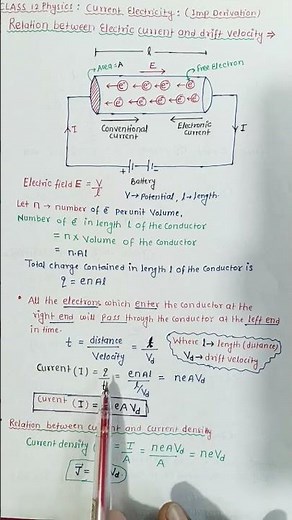 CLASS 12 Physics : Current Electricity : (Imp Derivation)
Relation between Electric current and drift velocity ⇒
l
Area = A
E
Free Electron
Conventional current
Electronic current
I
I
Battery
Electric field E = V/l
V → Potential, l → length
Let n → number of ē per unit volume.
Number of ē in length l of the conductor
= n x volume of the conductor
= nAl
Total charge contained in length l of the conductor is
q = enAl
* All the electrons which enter the conductor at the
right end will pass through the conductor at the left end
in time.
t = distance/velocity = l/Vd
Where l → length (distance)
Vd → drift velocity
Current (I) = q/t = enAl/l/Vd = neAVd
Current (I) = neAVd
Relation between current and current density
Current density = I/A = neAVd/A = neVd